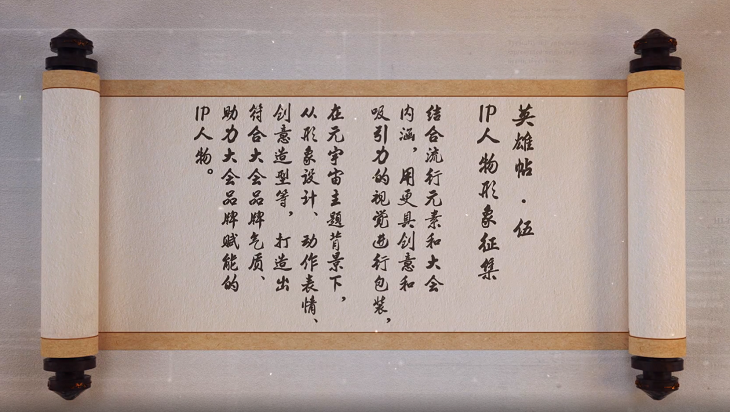 英雄帖·伍
IP人物形象征集
结合流行元素和大会
内涵，用更具创意和
吸引力的视觉进行包装，
在元宇宙主题背景下，
从形象设计、动作表情、
创意造型等，打造出
符合大会品牌气质、
助力大会品牌赋能的
IP人物。